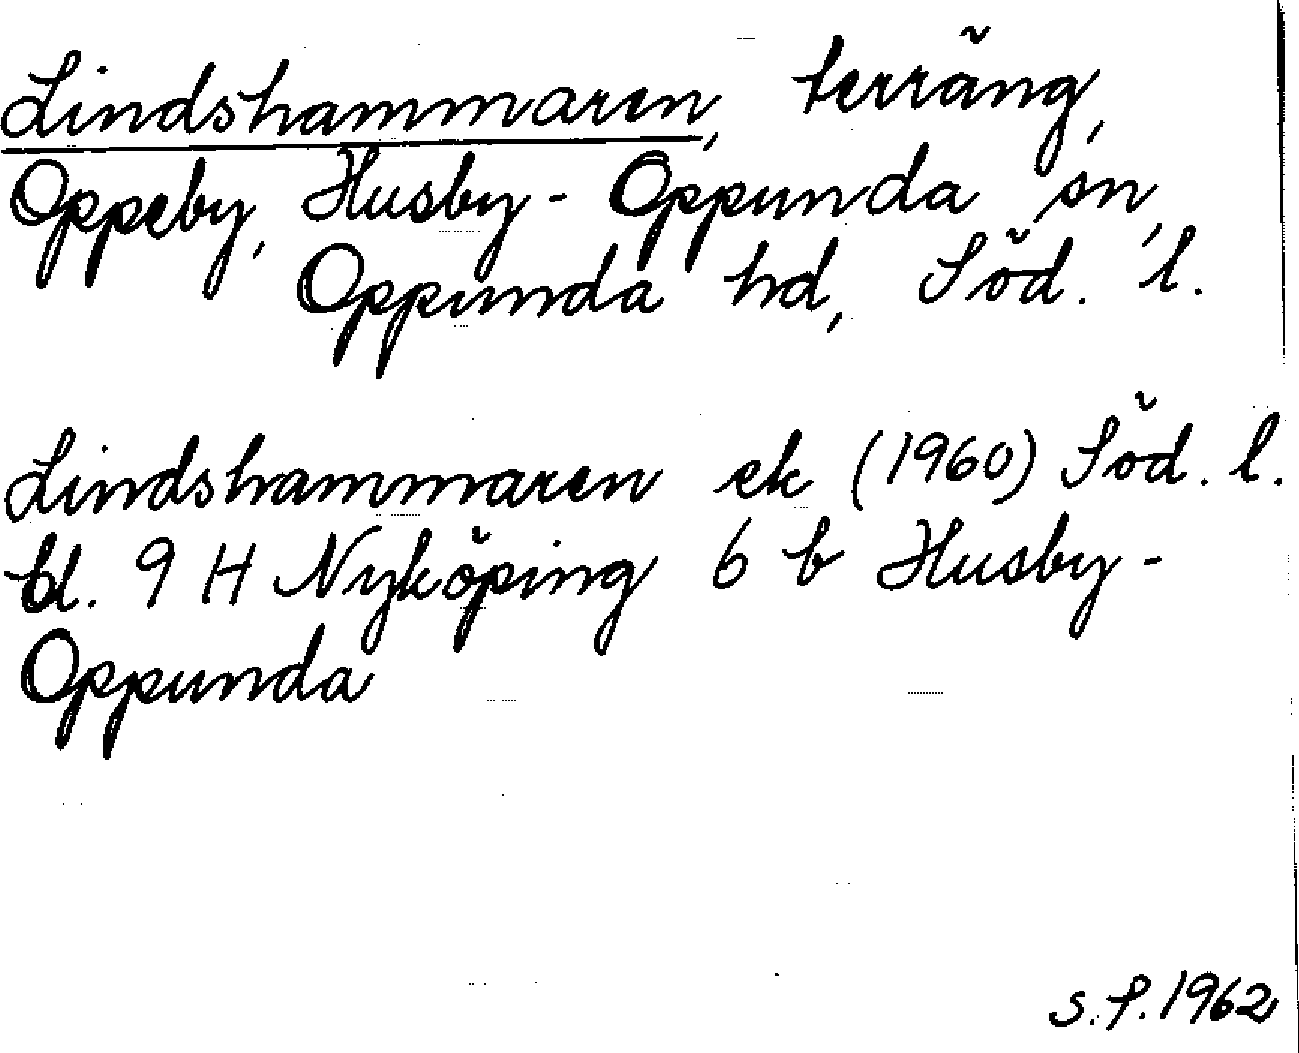 Lindshammaren, terräng,
Oppeby, Husby-Oppunda sn,
Oppunda hd, Söd. l.
Lindshammaren ek (1960) Söd. l.
bl. 9 H Nyköping 6 b Husby-
Oppunda
S.P. 1962